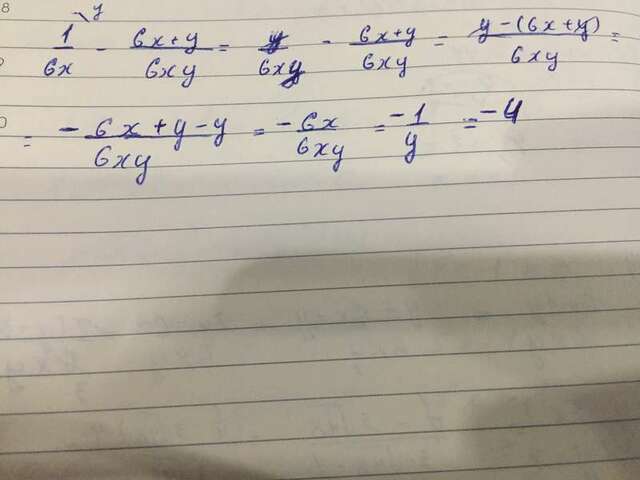 8 \ y
1/6x - (6x+y)/6xy = y/6xy - (6x+y)/6xy = (y-(6x+y))/6xy =
= (-6x+y-y)/6xy = -6x/6xy = -1/y = -4